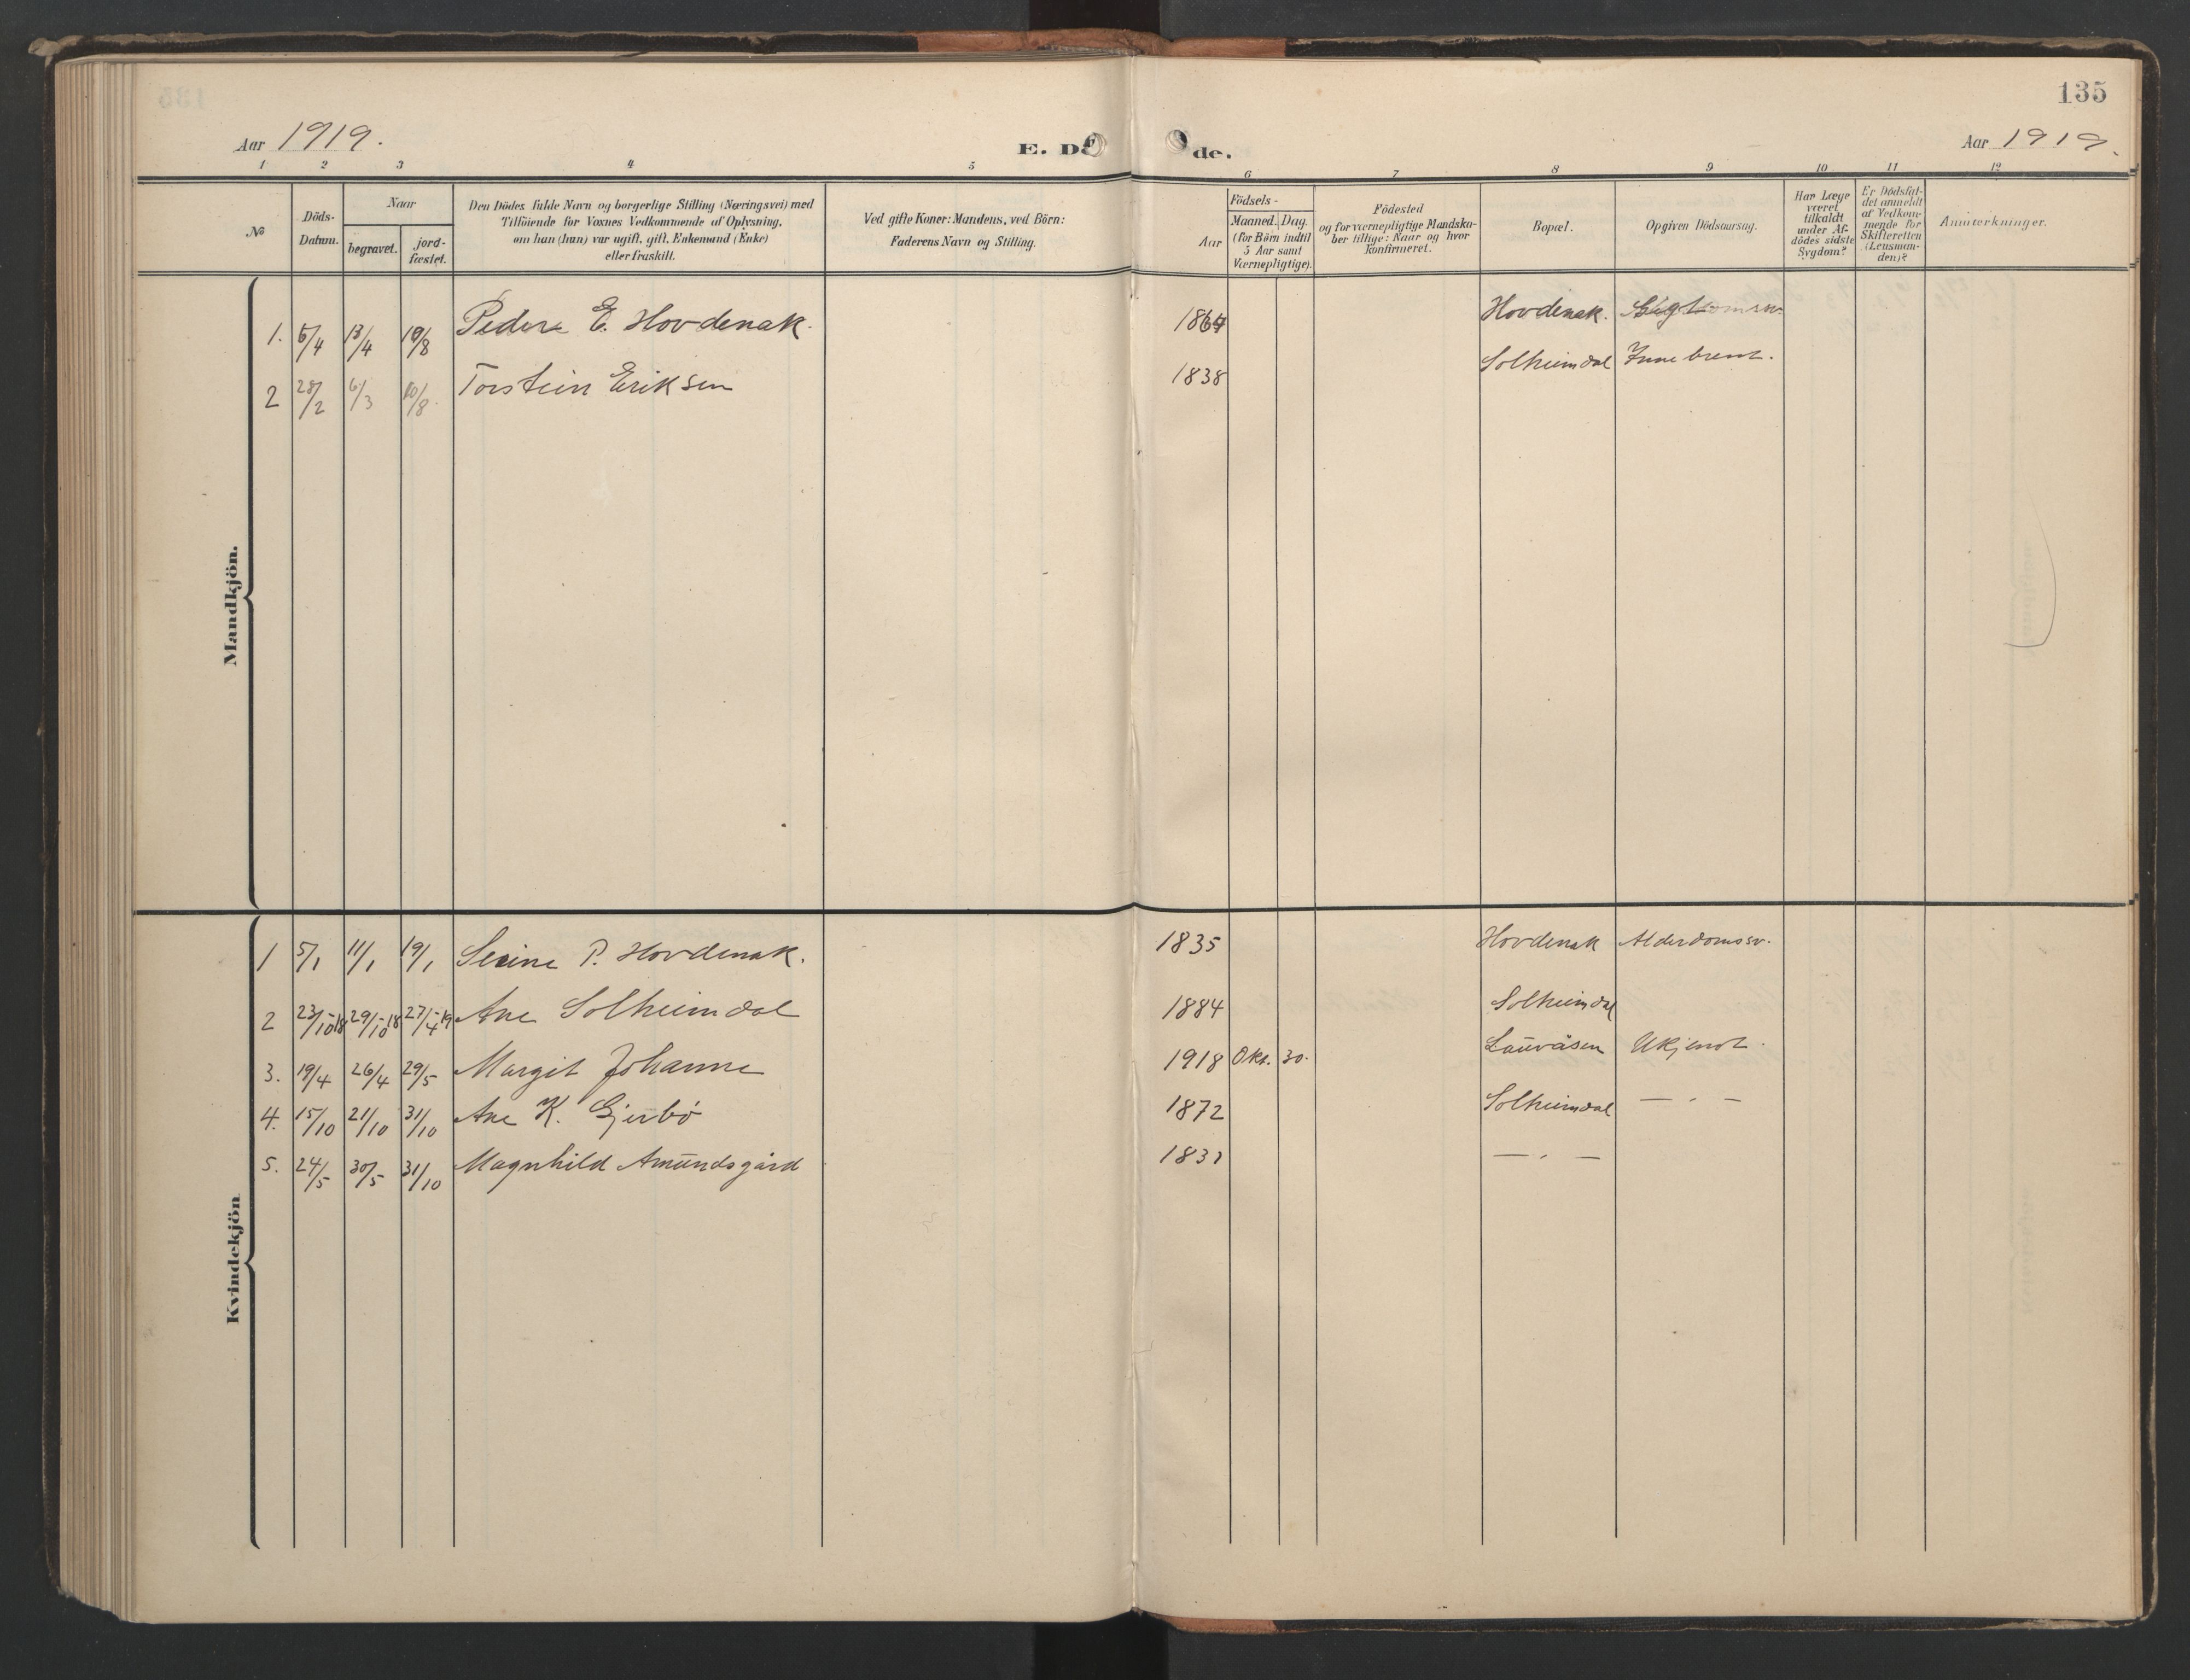 135
Aar 1919.
E. Dö de.
Aar 1919.
1 2 3 4 5 6 7 8 9 10 11 12
№
Döds-
Datum.
Naar
begravet.
jord-
fæstet.
Den Dödes fulde Navn og borgerlige Stilling (Næringsvei) med
Tilföiende for Voxnes Vedkommende af Oplysning,
om han (hun) var ugift, gift, Enkemand (Enke)
eller fraskilt.
Ved gifte Koner: Mandens, ved Börn:
Faderens Navn og Stilling.
Födsels-
Aar
Maaned. Dag.
(for Börn indtil
5 Aar samt
Værnepligtige).
Födested
og for værnepligtige Mandska-
ber tillige: Naar og hvor
konfirmeret.
Bopæl.
Opgiven Dödsaarsag.
Har Læge
været
tilkaldt
under Af-
dödes sidste
Sygdom?
Er Dödsfal-
det anmeldt
af Vedkom-
mende for
Skifteretten
(Lensman-
den)?
Anmærkninger.
Mandkjön.
1. 5/4 13/4 10/8 Peder E. Hovdenak. Hovdenak.
2 28/2 6/3 10/8 Torstein Eriksen 1838 Solheimdal
Kvindekjön
1 5/1 11/1 19/1 Serine P. Hovdenak. 1835 Hovdenak Alderdomssv.
2 23/10-18 29/10-18 27/4-19 Ane Solheimdal 1884 Solheimdal
3. 19/4 26/4 29/5 Margit Johanne 1918 Okt. 30. Lauvåsen Ukjendt.
4. 15/10 21/10 31/10 Ane K. Gjerbö 1872 Solheimdal — . —
5. 24/5 30/5 31/10 Magnhild Amundsgård 1831 — . —